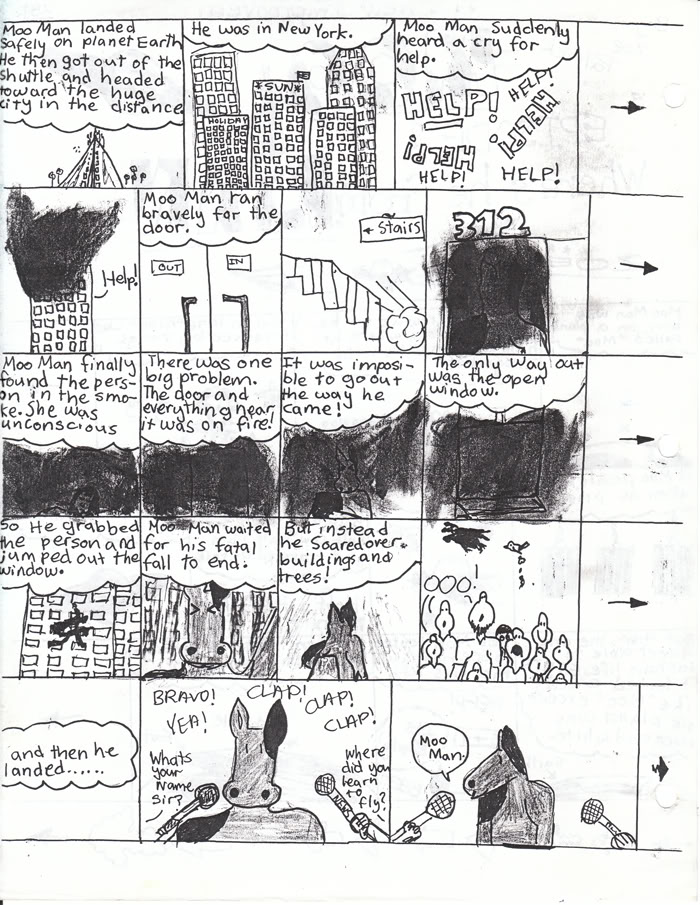 Moo Man landed
safely on planet Earth
He then got out of the
shuttle and headed
toward the huge
city in the distance.
He was in New York.
HOLIDAY
*SUN*
Moo Man Suddenly
heard a cry for
help.
HELP!
HELP!
HELP!
HELP!
HELP!
HELP!
Help!
Moo Man ran
bravely for the
door.
OUT
IN
← Stairs
312
Moo Man finally
found the pers-
on in the smo-
ke. She was
unconscious
There was one
big problem.
The door and
everything near
it was on fire!
It was impossi-
ble to go out
the way he
came!
The only way out
was the open
window.
So He grabbed
the person and
jumped out the
window.
Moo Man waited
for his fatal
fall to end.
But instead
he Soared over
buildings and
trees!
OOO
!
and then he
landed......
BRAVO!
YEA!
CLAP!
CLAP!
CLAP!
Whats
your
Name,
Sir?
Where
did you
learn
to
fly?
NEWS
Moo
Man.